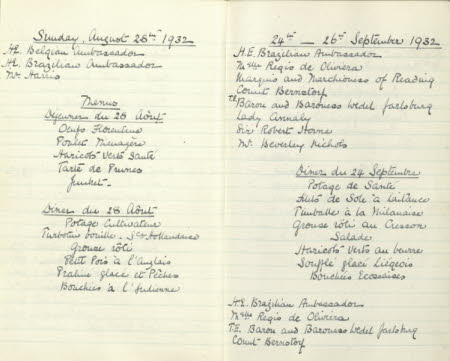 Sunday, August 28th 1932
H.E. Belgian Ambassador
H.E. Brazilian Ambassador
Mr Harris
Menus
Déjeuner du 28 Août
Oeufs Florentine
Poulet Menagère
Haricots Verts Sauté
Tarte de Prunes
Junket.
Diner du 28 Août
Potage Cultivateur
Turbotin bouillé - Sce Hollandaise
Grouse rôti
Petit Pois à l'Anglais
Praline glacé et Pêches
Bouchées à l'Indienne
24th - 26th September 1932
H.E. Brazilian Ambassador
Mme Regis de Oliviera
Marquis and Marchioness of Reading
Count Bernstorf
T.E. Baron and Baroness Wedel Jarlsburg
Lady Annaly
Sir Robert Horne
Mr Beverley Nichols
Diner du 24 Septembre
Potage de Santé
Filets de Sole à Laitance
Timballe à la Milanaise
Grouse rôti au Cresson
Salade
Haricots Verts au beurre
Soufflé glacé Liégeois
Bouchées Ecossaises
H.E. Brazilian Ambassador
Mme Regis de Oliviera
T.E. Baron and Baroness Wedel Jarlsburg
Count Bernstorf